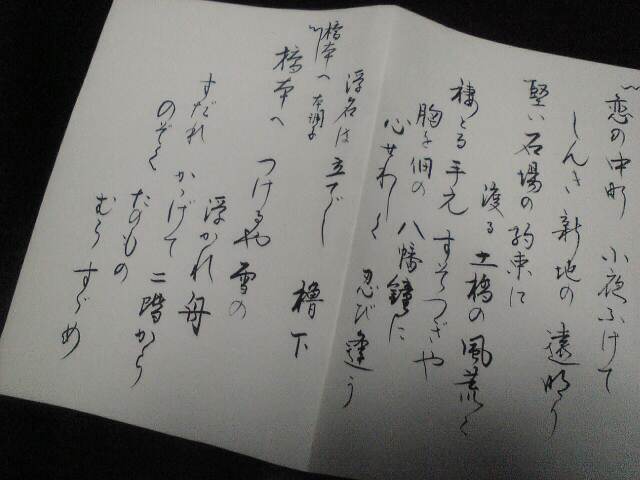 恋の中町 小夜ふけて
しんき新地の 遠明り
堅い石場の約束に
渡る土橋の風荒く
棲とる手元 すそつぎや
胸を佃の 八幡鐘に
心せわしく 忍び逢う
浮名は立てじ 櫓下
橋本へ 本調子
橋本へ つけるや雪の
浮かれ舟
すだれ かゝげて 二階から
のぞく たのもの
むら すゞめ